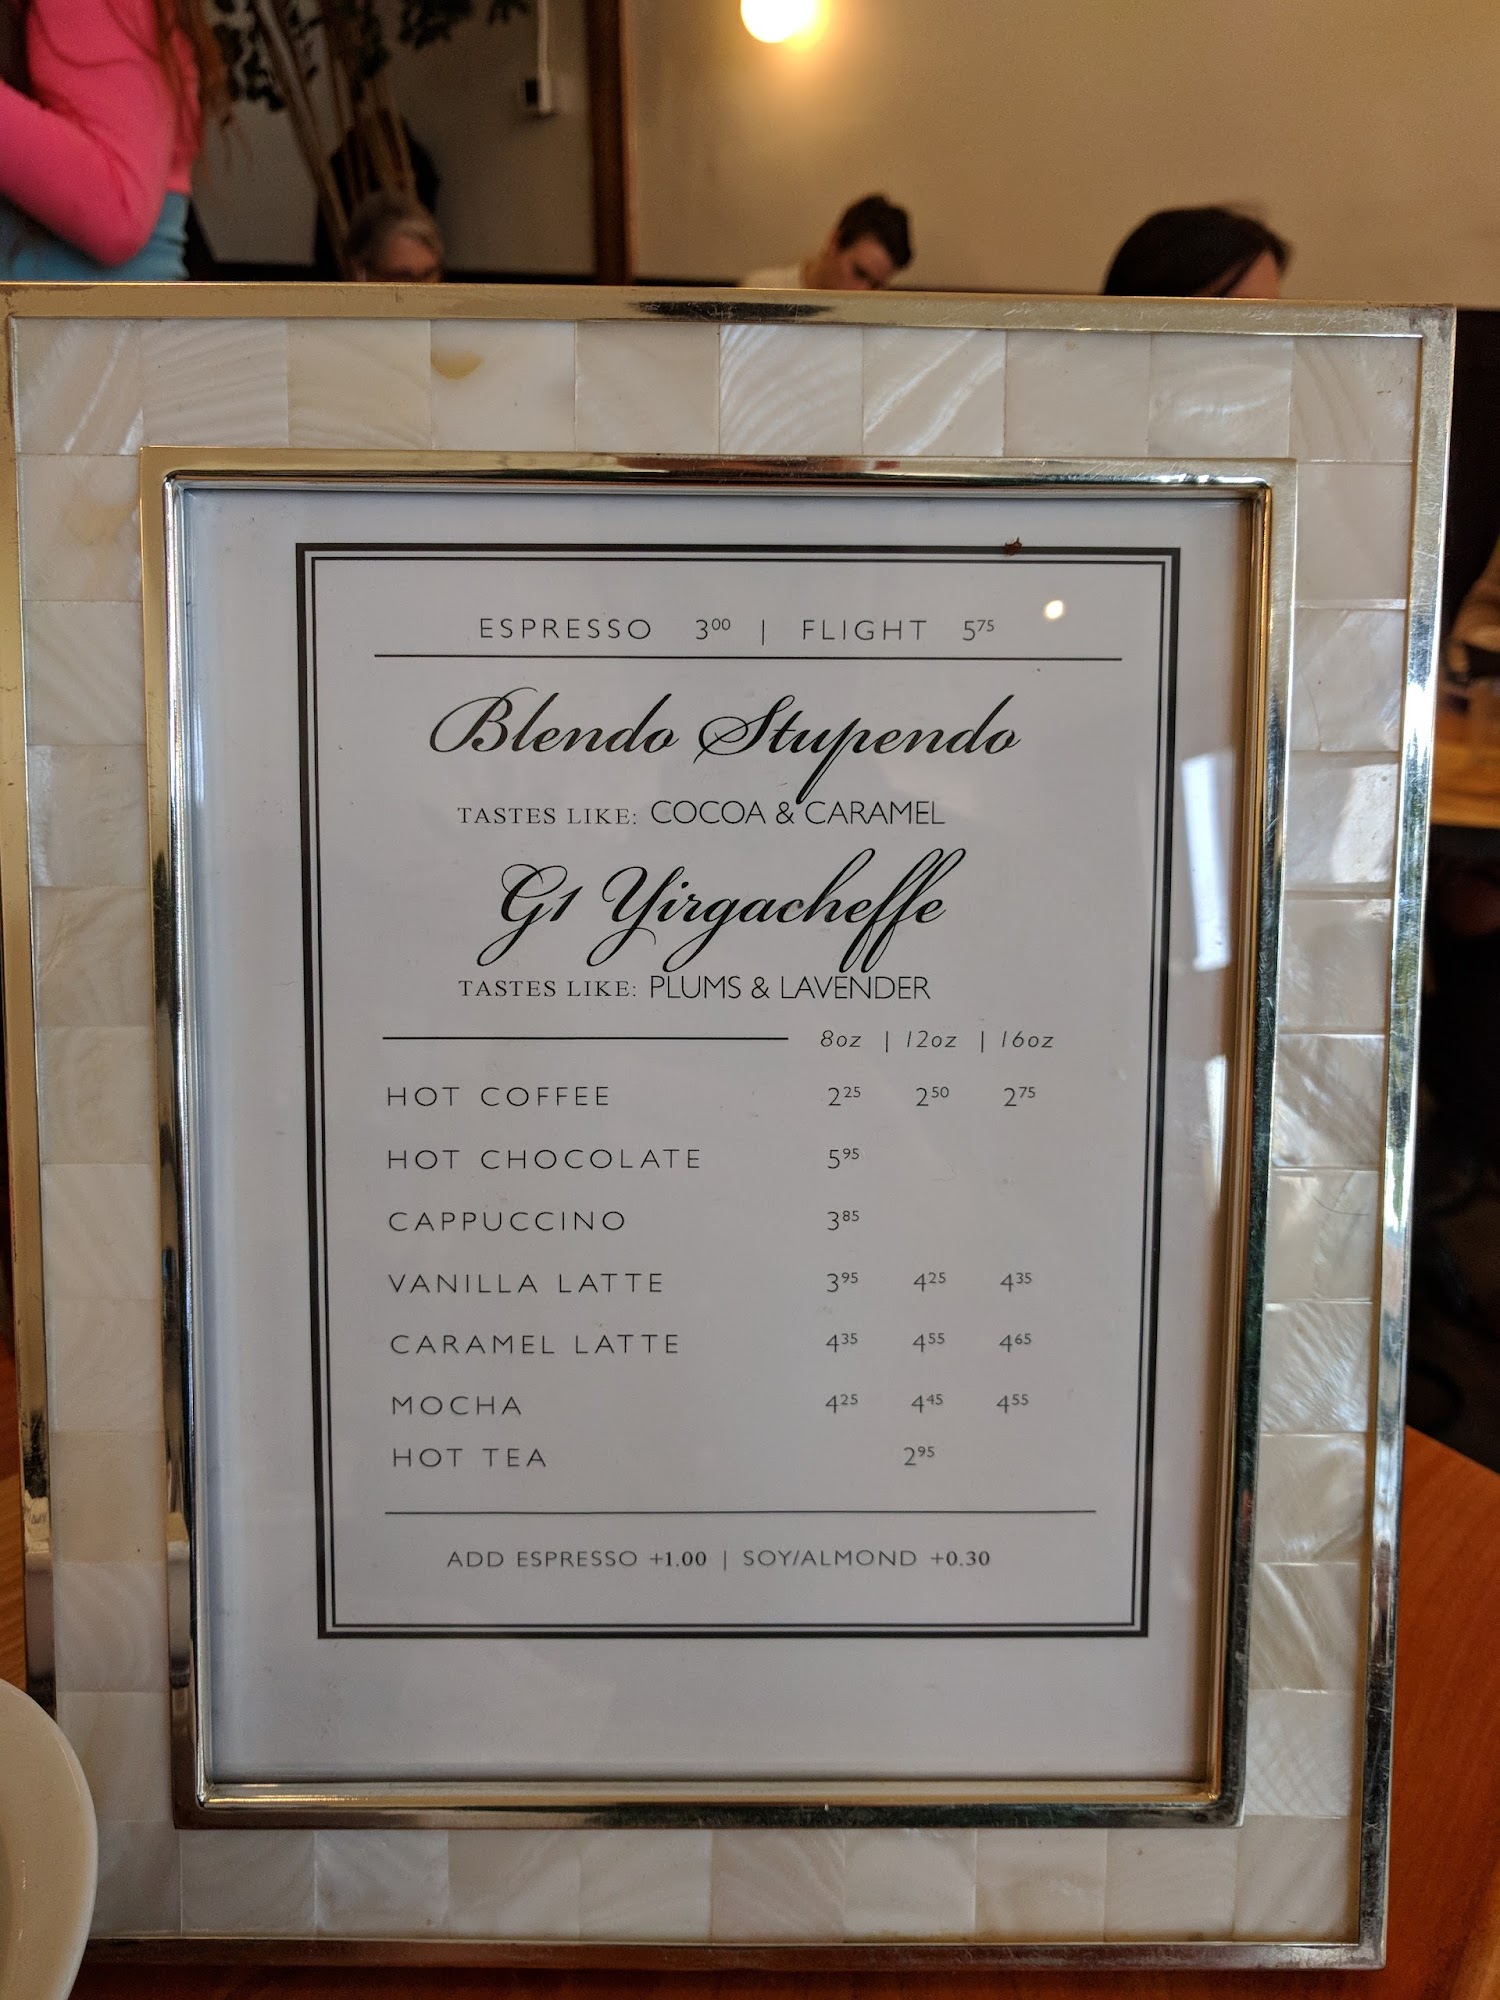 ESPRESSO 3⁰⁰ | FLIGHT 5⁷⁵
Blendo Stupendo
TASTES LIKE: COCOA & CARAMEL
G1 Yirgacheffe
TASTES LIKE: PLUMS & LAVENDER
8oz | 12oz | 16oz
HOT COFFEE 2²⁵ 2⁵⁰ 2⁷⁵
HOT CHOCOLATE 5⁹⁵
CAPPUCCINO 3⁸⁵
VANILLA LATTE 3⁹⁵ 4²⁵ 4³⁵
CARAMEL LATTE 4³⁵ 4⁵⁵ 4⁶⁵
MOCHA 4²⁵ 4⁴⁵ 4⁵⁵
HOT TEA 2⁹⁵
ADD ESPRESSO +1.00 | SOY/ALMOND +0.30